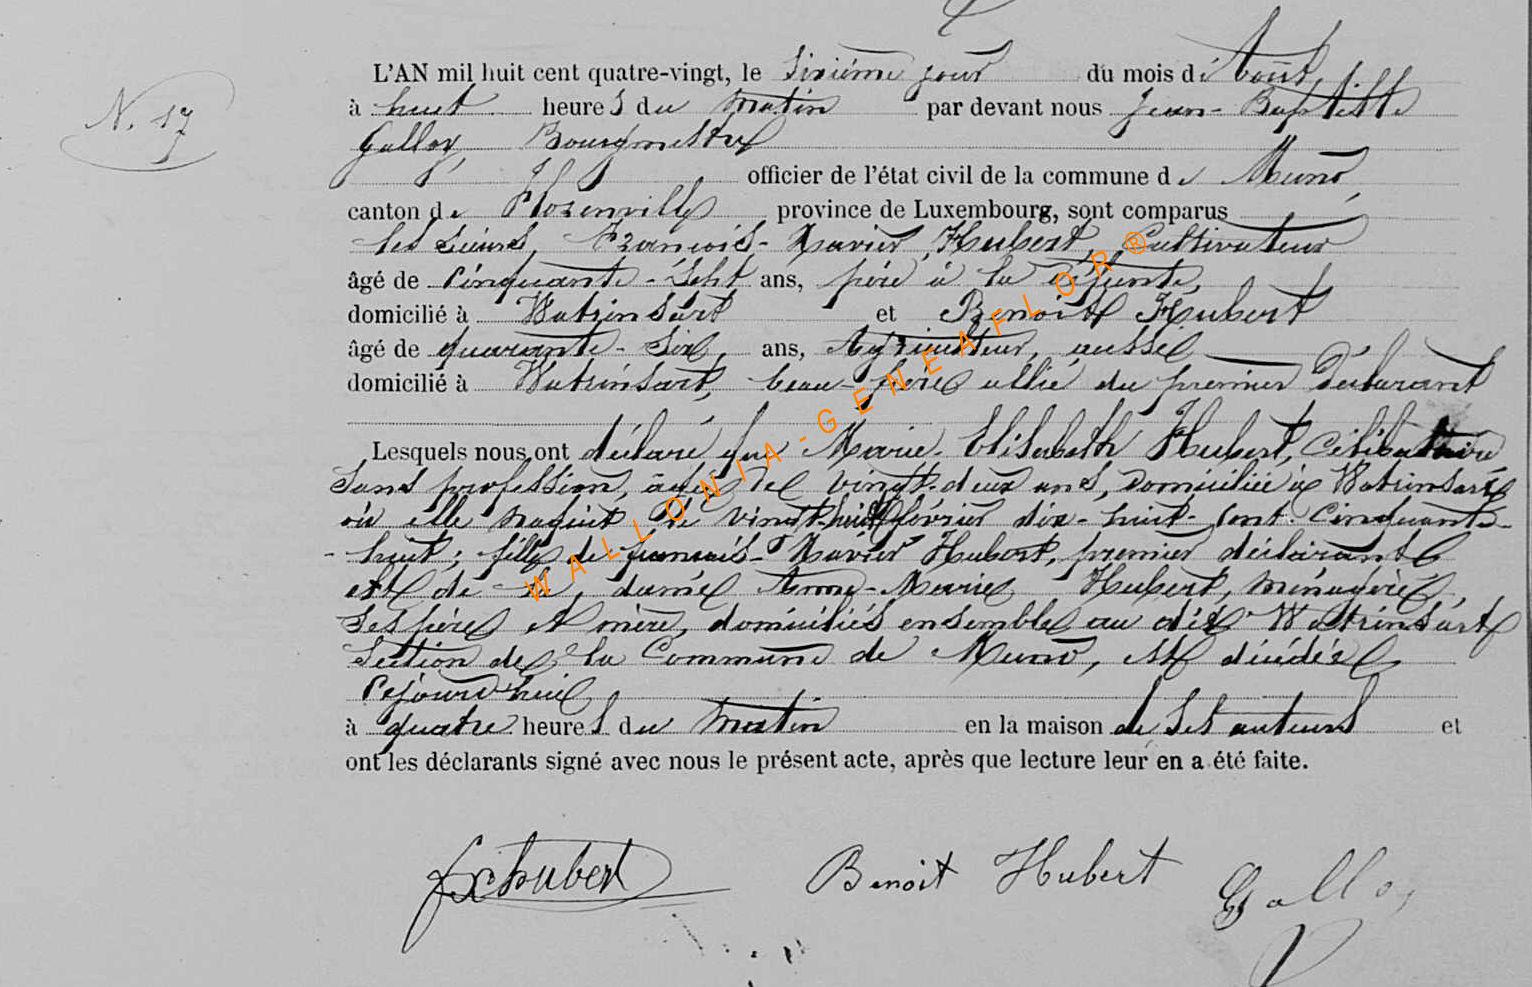 N. 17
L'AN mil huit cent quatre-vingt, le sixième jour du mois d'août,
à huit heures du matin par devant nous Jean-Baptiste
Galloy Bourgmestre
officier de l'état civil de la commune de Muno,
canton de Florenville province de Luxembourg, sont comparus
les sieurs, François-Xavier Hubert, Cultivateur
âgé de cinquante-sept ans, père à la défunte,
domicilié à Watrinsart et Benoit Hubert
âgé de quarante-six, ans, Agriculteur, aussi
domicilié à Watrinsart, beau-frère allié du premier Déclarant
Lesquels nous ont déclaré que Marie-Elisabeth Hubert, Célibataire
sans profession, âgée de vingt-deux ans, domiciliée à Watrinsart
où elle naquit le vingt-huit février dix-huit-cent-cinquante-
-huit; fille de françois-Xavier Hubert, premier déclarant
et de dame Anne-Marie Hubert, ménagère,
ses père et mère, domiciliés ensemble au dit Watrinsart
Section de la Commune de Muno, est décédée
cejourd'hui
à quatre heures du matin en la maison de ses auteurs et
ont les déclarants signé avec nous le présent acte, après que lecture leur en a été faite.
fxhubert Benoit Hubert Galloy
WALLONIA-GENEAFLOR®